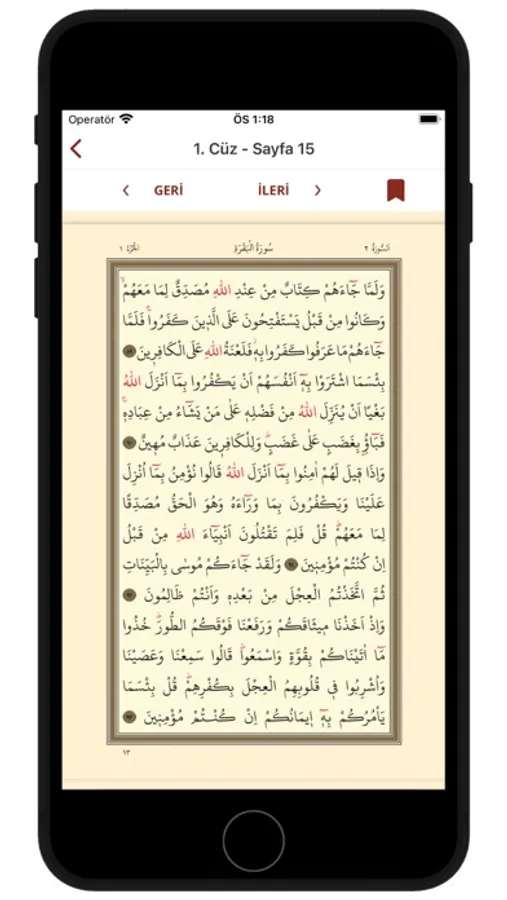 Operatör ÖS 1:18
1. Cüz - Sayfa 15
GERİ İLERİ
اَلسُّورَةُ ٢ سُورَةُ الْبَقَرَةِ اَلْجُزْءُ ١
وَلَمَّا جَٓاءَهُمْ كِتَابٌ مِنْ عِنْدِ اللّٰهِ مُصَدِّقٌ لِمَا مَعَهُمْۙ
وَكَانُوا مِنْ قَبْلُ يَسْتَفْتِحُونَ عَلَى الَّذِينَ كَفَرُواۚ فَلَمَّا
جَٓاءَهُمْ مَا عَرَفُوا كَفَرُوا بِهِۘ فَلَعْنَةُ اللّٰهِ عَلَى الْكَافِرِينَ ٨٩
بِئْسَمَا اشْتَرَوْا بِهِٓ اَنْفُسَهُمْ اَنْ يَكْفُرُوا بِمَٓا اَنْزَلَ اللّٰهُ
بَغْيًا اَنْ يُنَزِّلَ اللّٰهُ مِنْ فَضْلِهِ عَلٰى مَنْ يَشَٓاءُ مِنْ عِبَادِهِۚ
فَبَٓاؤُ بِغَضَبٍ عَلٰى غَضَبٍۜ وَلِلْكَافِرِينَ عَذَابٌ مُهِينٌ ٩٠
وَاِذَا قِيلَ لَهُمْ اٰمِنُوا بِمَٓا اَنْزَلَ اللّٰهُ قَالُوا نُؤْمِنُ بِمَٓا اُنْزِلَ
عَلَيْنَا وَيَكْفُرُونَ بِمَا وَرَٓاءَهُ وَهُوَ الْحَقُّ مُصَدِّقًا
لِمَا مَعَهُمْۜ قُلْ فَلِمَ تَقْتُلُونَ اَنْبِيَٓاءَ اللّٰهِ مِنْ قَبْلُ
اِنْ كُنْتُمْ مُؤْمِنِينَ ٩١ وَلَقَدْ جَٓاءَكُمْ مُوسٰى بِالْبَيِّنَاتِ
ثُمَّ اتَّخَذْتُمُ الْعِجْلَ مِنْ بَعْدِهِ وَاَنْتُمْ ظَالِمُونَ ٩٢
وَاِذْ اَخَذْنَا مِيثَاقَكُمْ وَرَفَعْنَا فَوْقَكُمُ الطُّورَۜ خُذُوا
مَٓا اٰتَيْنَاكُمْ بِقُوَّةٍ وَاسْمَعُواۜ قَالُوا سَمِعْنَا وَعَصَيْنَا
وَاُشْرِبُوا فِي قُلُوبِهِمُ الْعِجْلَ بِكُفْرِهِمْۜ قُلْ بِئْسَمَا
يَأْمُرُكُمْ بِهِٓ اِيمَانُكُمْ اِنْ كُنْتُمْ مُؤْمِنِينَ ٩٣
١٣